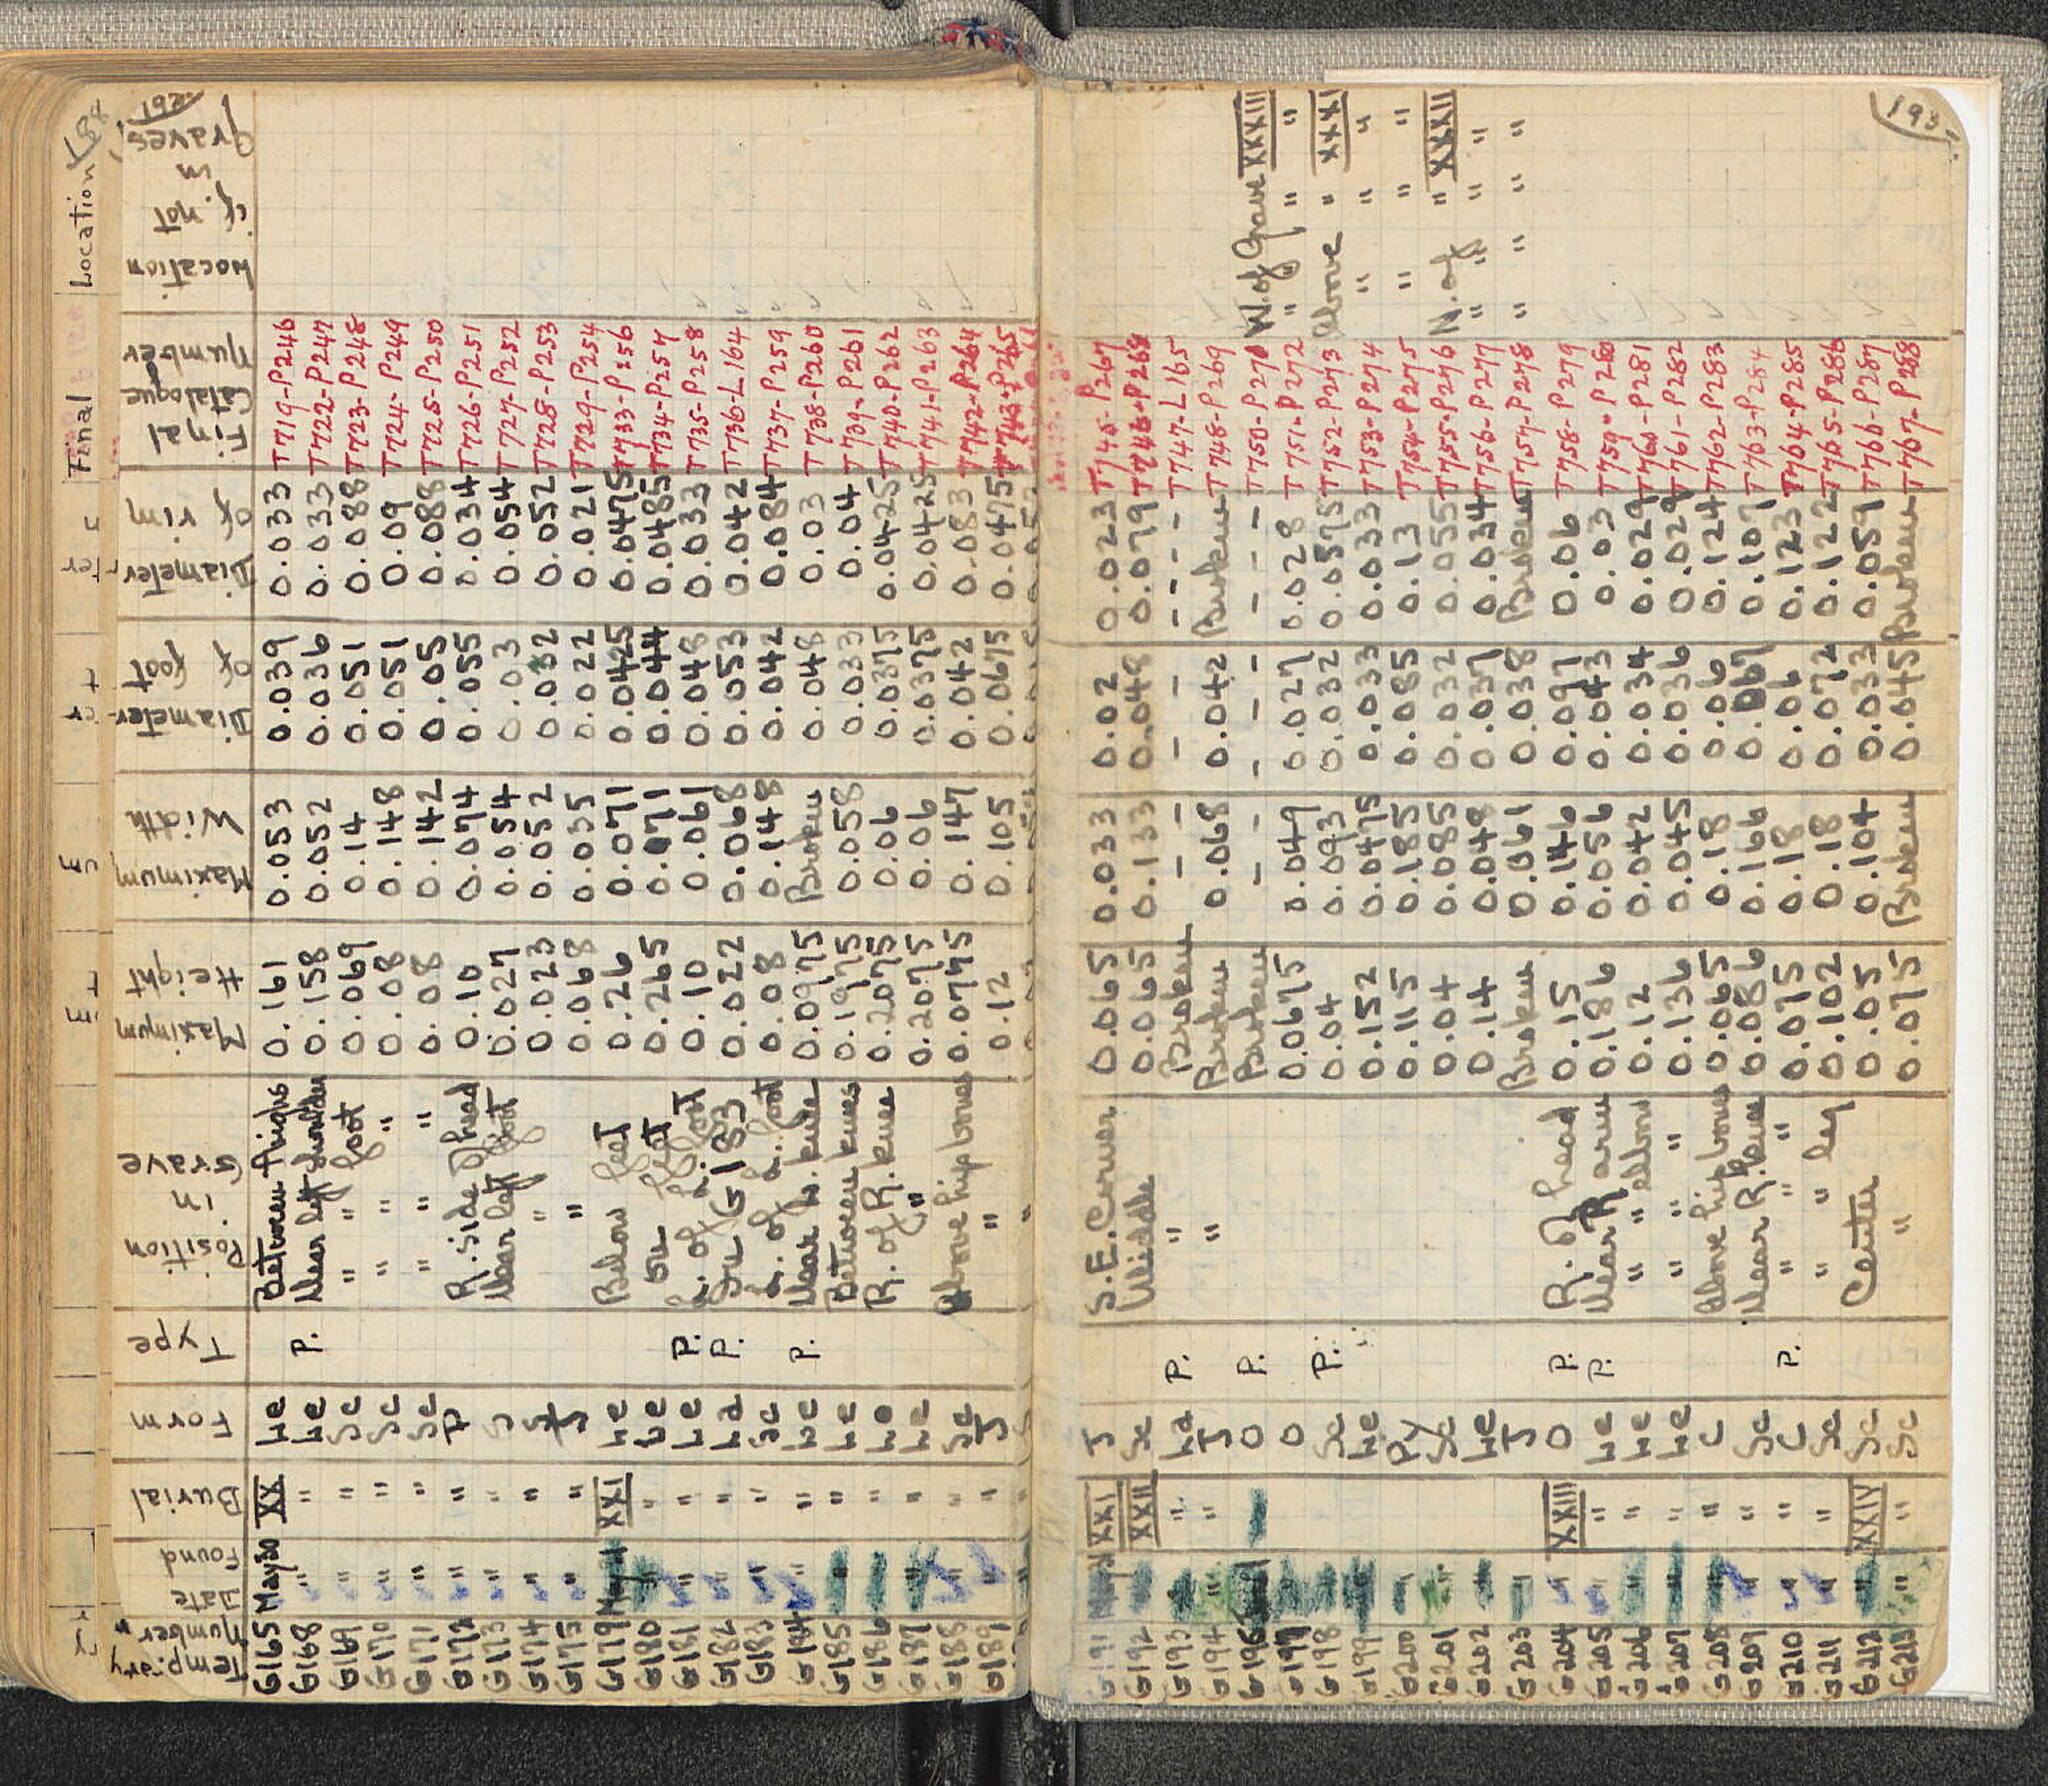 192
Temporary Number
Date Found
Burial
Form
Type
Position in Grave
Maximum Height
Maximum Width
Diameter of foot
Diameter of rim
Final Catalogue Number
Location if not in graves
G165 May 30 XX he Between thighs 0.161 0.053 0.039 0.033 T719-P246
G168 " " he P. Near left shoulder 0.158 0.052 0.036 0.033 T722-P247
G169 " " Sc " " foot 0.069 0.14 0.051 0.088 T723-P248
G170 " " Sc " " " 0.08 0.148 0.051 0.09 T724-P249
G171 " " Sc " " " 0.08 0.142 0.05 0.088 T725-P250
G172 " " P R. side of head 0.10 0.074 0.055 0.034 T726-P251
G173 " " S Near left foot 0.027 0.054 0.03 0.054 T727-P252
G174 " " " 0.023 0.052 0.032 0.052 T728-P253
G175 " " " 0.068 0.035 0.022 0.021 T729-P254
G179 May 31 XXI he Below feet 0.26 0.071 0.0425 0.0475 T733-P256
G180 " " he On feet 0.265 0.071 0.044 0.0485 T734-P257
G181 " " he P. L. of L. foot 0.10 0.061 0.048 0.033 T735-P258
G182 " " ha P. In G183 0.022 0.068 0.053 0.042 T736-L164
G183 " " Sc L. of L. foot 0.08 0.148 0.042 0.084 T737-P259
G184 " " he P. Near L. knee 0.0975 Broken 0.048 0.03 T738-P260
G185 " " he Between knees 0.1975 0.058 0.033 0.04 T739-P261
G186 " " he R. of R. knee 0.2075 0.06 0.0375 0.0425 T740-P262
G187 " " he " 0.2075 0.06 0.0375 0.0425 T741-P263
G188 " " Sc Above hip bones 0.0775 0.147 0.042 0.083 T742-P264
G189 " " S " " 0.12 0.105 0.0675 0.0475 T743-P265
193
G191 XXI S S.E. Corner 0.065 0.033 0.02 0.023 T745-P267
G192 XXII Sc Middle 0.065 0.133 0.048 0.079 T746-P268
G193 " " ha P. " Broken - - - - - - - T747-L165
G194 " " S " Broken 0.068 0.042 Broken T748-P269
G195 O P. Broken - - - - - - - T750-P270 W. of Grave XXXIII
G197 O 0.0675 0.049 0.027 0.028 T751-P272 " " " "
G198 Sc P. 0.04 0.093 0.032 0.0575 T752-P273 Above " XXXI
G199 he 0.152 0.0475 0.033 0.033 T753-P274 " " "
G200 " Py 0.115 0.185 0.085 0.13 T754-P275 " " "
G201 " Sc 0.04 0.085 0.032 0.055 T755-P276 N. of " XXXII
G202 " he 0.14 0.048 0.037 0.034 T756-P277 " " " "
G203 " S Broken 0.061 0.038 Broken T757-P278 " " " "
G204 " XXIII O P. R. of head 0.15 0.146 0.097 0.06 T758-P279
G205 " " he P. Near R arm 0.186 0.056 0.043 0.03 T759-P280
G206 " " he " " elbow 0.12 0.042 0.034 0.029 T760-P281
G207 " " he " " " 0.136 0.045 0.036 0.029 T761-P282
G208 " " C Above hip bones 0.0665 0.18 0.06 0.124 T762-P283
G209 " " Sc Near R. knee 0.086 0.166 0.067 0.107 T763-P284
G210 " " C P. " " " 0.075 0.18 0.06 0.123 T764-P285
G211 " " Sc " " leg 0.102 0.18 0.072 0.122 T765-P286
G212 " XXIV Sc Center 0.05 0.104 0.033 0.059 T766-P287
G213 " " Sc " 0.075 Broken 0.045 Broken T767-P288
188
Location
Final